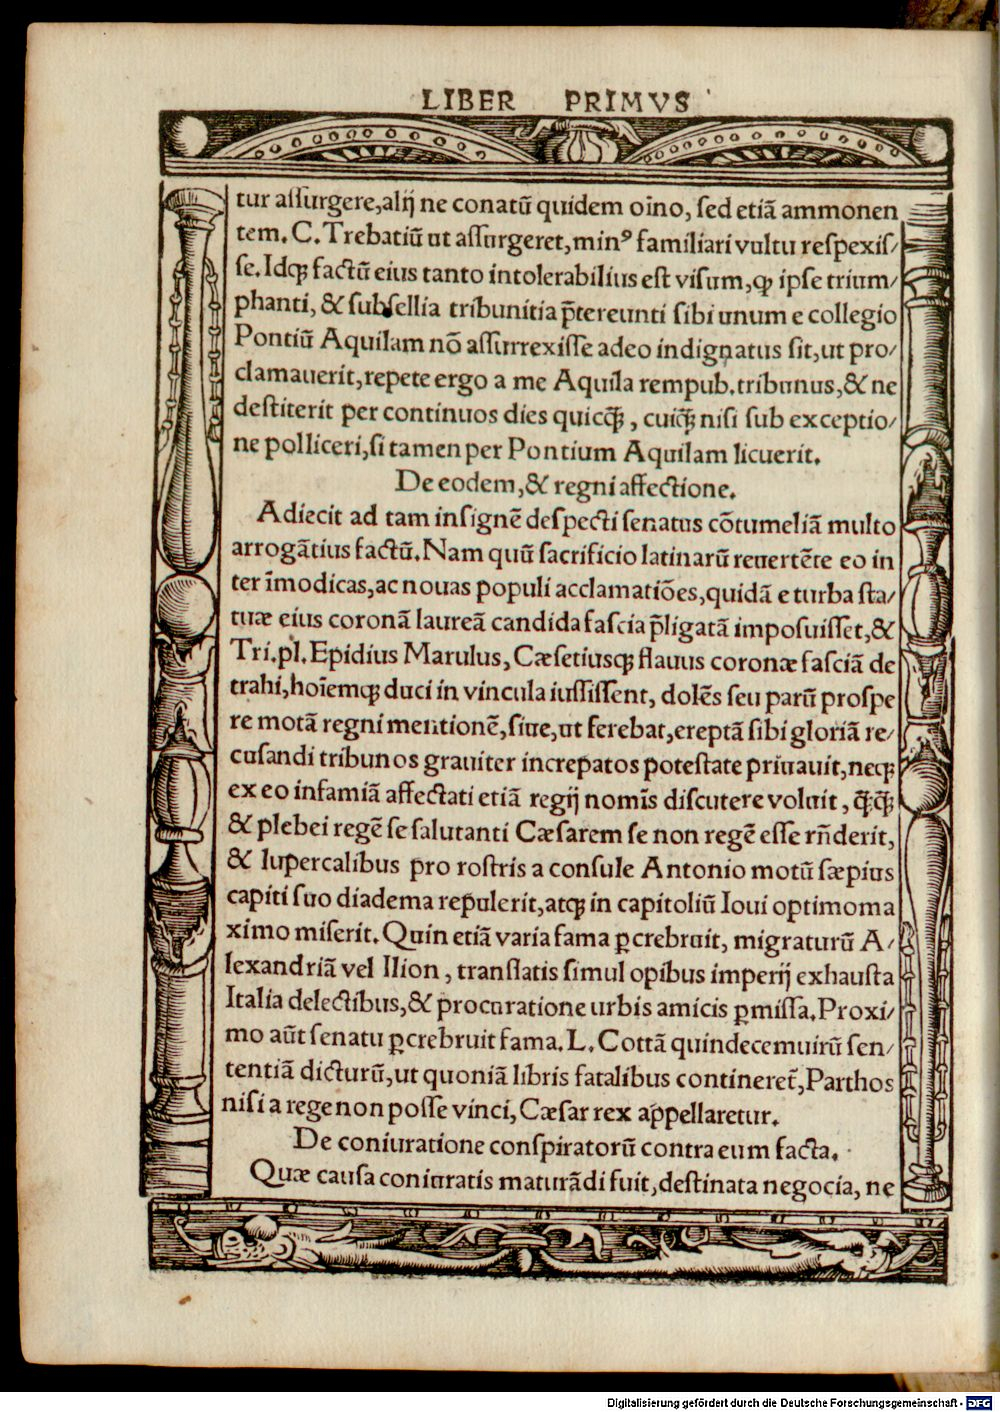 LIBER PRIMVS
tur aſſurgere,alij ne conatũ quidem oĩno, ſed etiã ammonen
tem. C. Trebatiũ ut aſſurgeret, minꝰ familiari vultu reſpexiſ/
ſe. Idqꝫ factũ eius tanto intolerabilius eſt viſum, ꝙ ipſe trium/
phanti, & ſubſellia tribunitia p̃tereunti ſibi unum e collegio
Pontiũ Aquilam nõ aſſurrexiſſe adeo indignatus ſit, ut pro/
clamauerit, repete ergo a me Aquila rempub. tribunus, & ne
deſtiterit per continuos dies quicq̃ꝫ, cuiqꝫ niſi ſub exceptio/
ne polliceri, ſi tamen per Pontium Aquilam licuerit.
De eodem, & regni affectione.
Adiecit ad tam inſignẽ deſpecti ſenatus cõtumeliã multo
arrogãtius factũ. Nam quũ ſacrificio latinarũ reuertẽte eo in
ter ĩmodicas, ac nouas populi acclamatiões, quidã e turba ſta/
tuæ eius coronã laureã candida faſcia p̃ligatã impoſuiſſet, &
Tri. pl. Epidius Marulus, Cæſetiusqꝫ flauus coronæ faſciã de
trahi, hoĩemqꝫ duci in vincula iuſſiſſent, dolẽs ſeu parũ proſpe
re motã regni mentionẽ, ſiue, ut ferebat, ereptã ſibi gloriã re/
cuſandi tribunos grauiter increpatos poteſtate priuauit, neqꝫ
ex eo infamiã affectati etiã regij nomĩs diſcutere voluit, q̃ꝫq̃ꝫ
& plebei regẽ ſe ſalutanti Cæſarem ſe non regẽ eſſe rñderit,
& lupercalibus pro roſtris a conſule Antonio motũ ſæpius
capiti ſuo diadema repulerit, atqꝫ in capitoliũ Ioui optimoma
ximo miſerit. Quin etiã varia fama ꝑcrebruit, migraturũ A/
lexandriã vel Ilion, tranſlatis ſimul opibus imperij exhauſta
Italia delectibus, & procuratione urbis amicis ꝑmiſſa. Proxi/
mo aũt ſenatu ꝑcrebruit fama. L. Cottã quindecemuirũ ſen/
tentiã dicturũ, ut quoniã libris fatalibus contineret̃, Parthos
niſi a rege non poſſe vinci, Cæſar rex appellaretur.
De coniuratione conſpiratorũ contra eum facta.
Quæ cauſa coniuratis maturãdi fuit, deſtinata negocia, ne
Digitalisierung gefördert durch die Deutsche Forschungsgemeinschaft - DFG